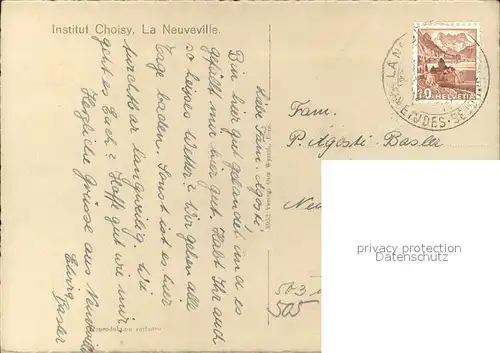 Institut Choisy, La Neuveville.
Liebe Fam. Agosti
Bin hier gut gelandet und es
gefällt mir hier gut. Habt Ihr auch
so heisses Wetter? Wir gehen alle
Tage baden. Sonst ist es hier
furchtbar langweilig. Wie
geht es Euch? Hoffe gut wie mir
Herzliche Grüsse aus Neuveville
Elwira
Reproduktion verboten
10 HELVETIA
ETUDES. SE
Fam.
P. Agosti-Basler
Ne
503
505
privacy protection
www.ansichtskartenversand.com